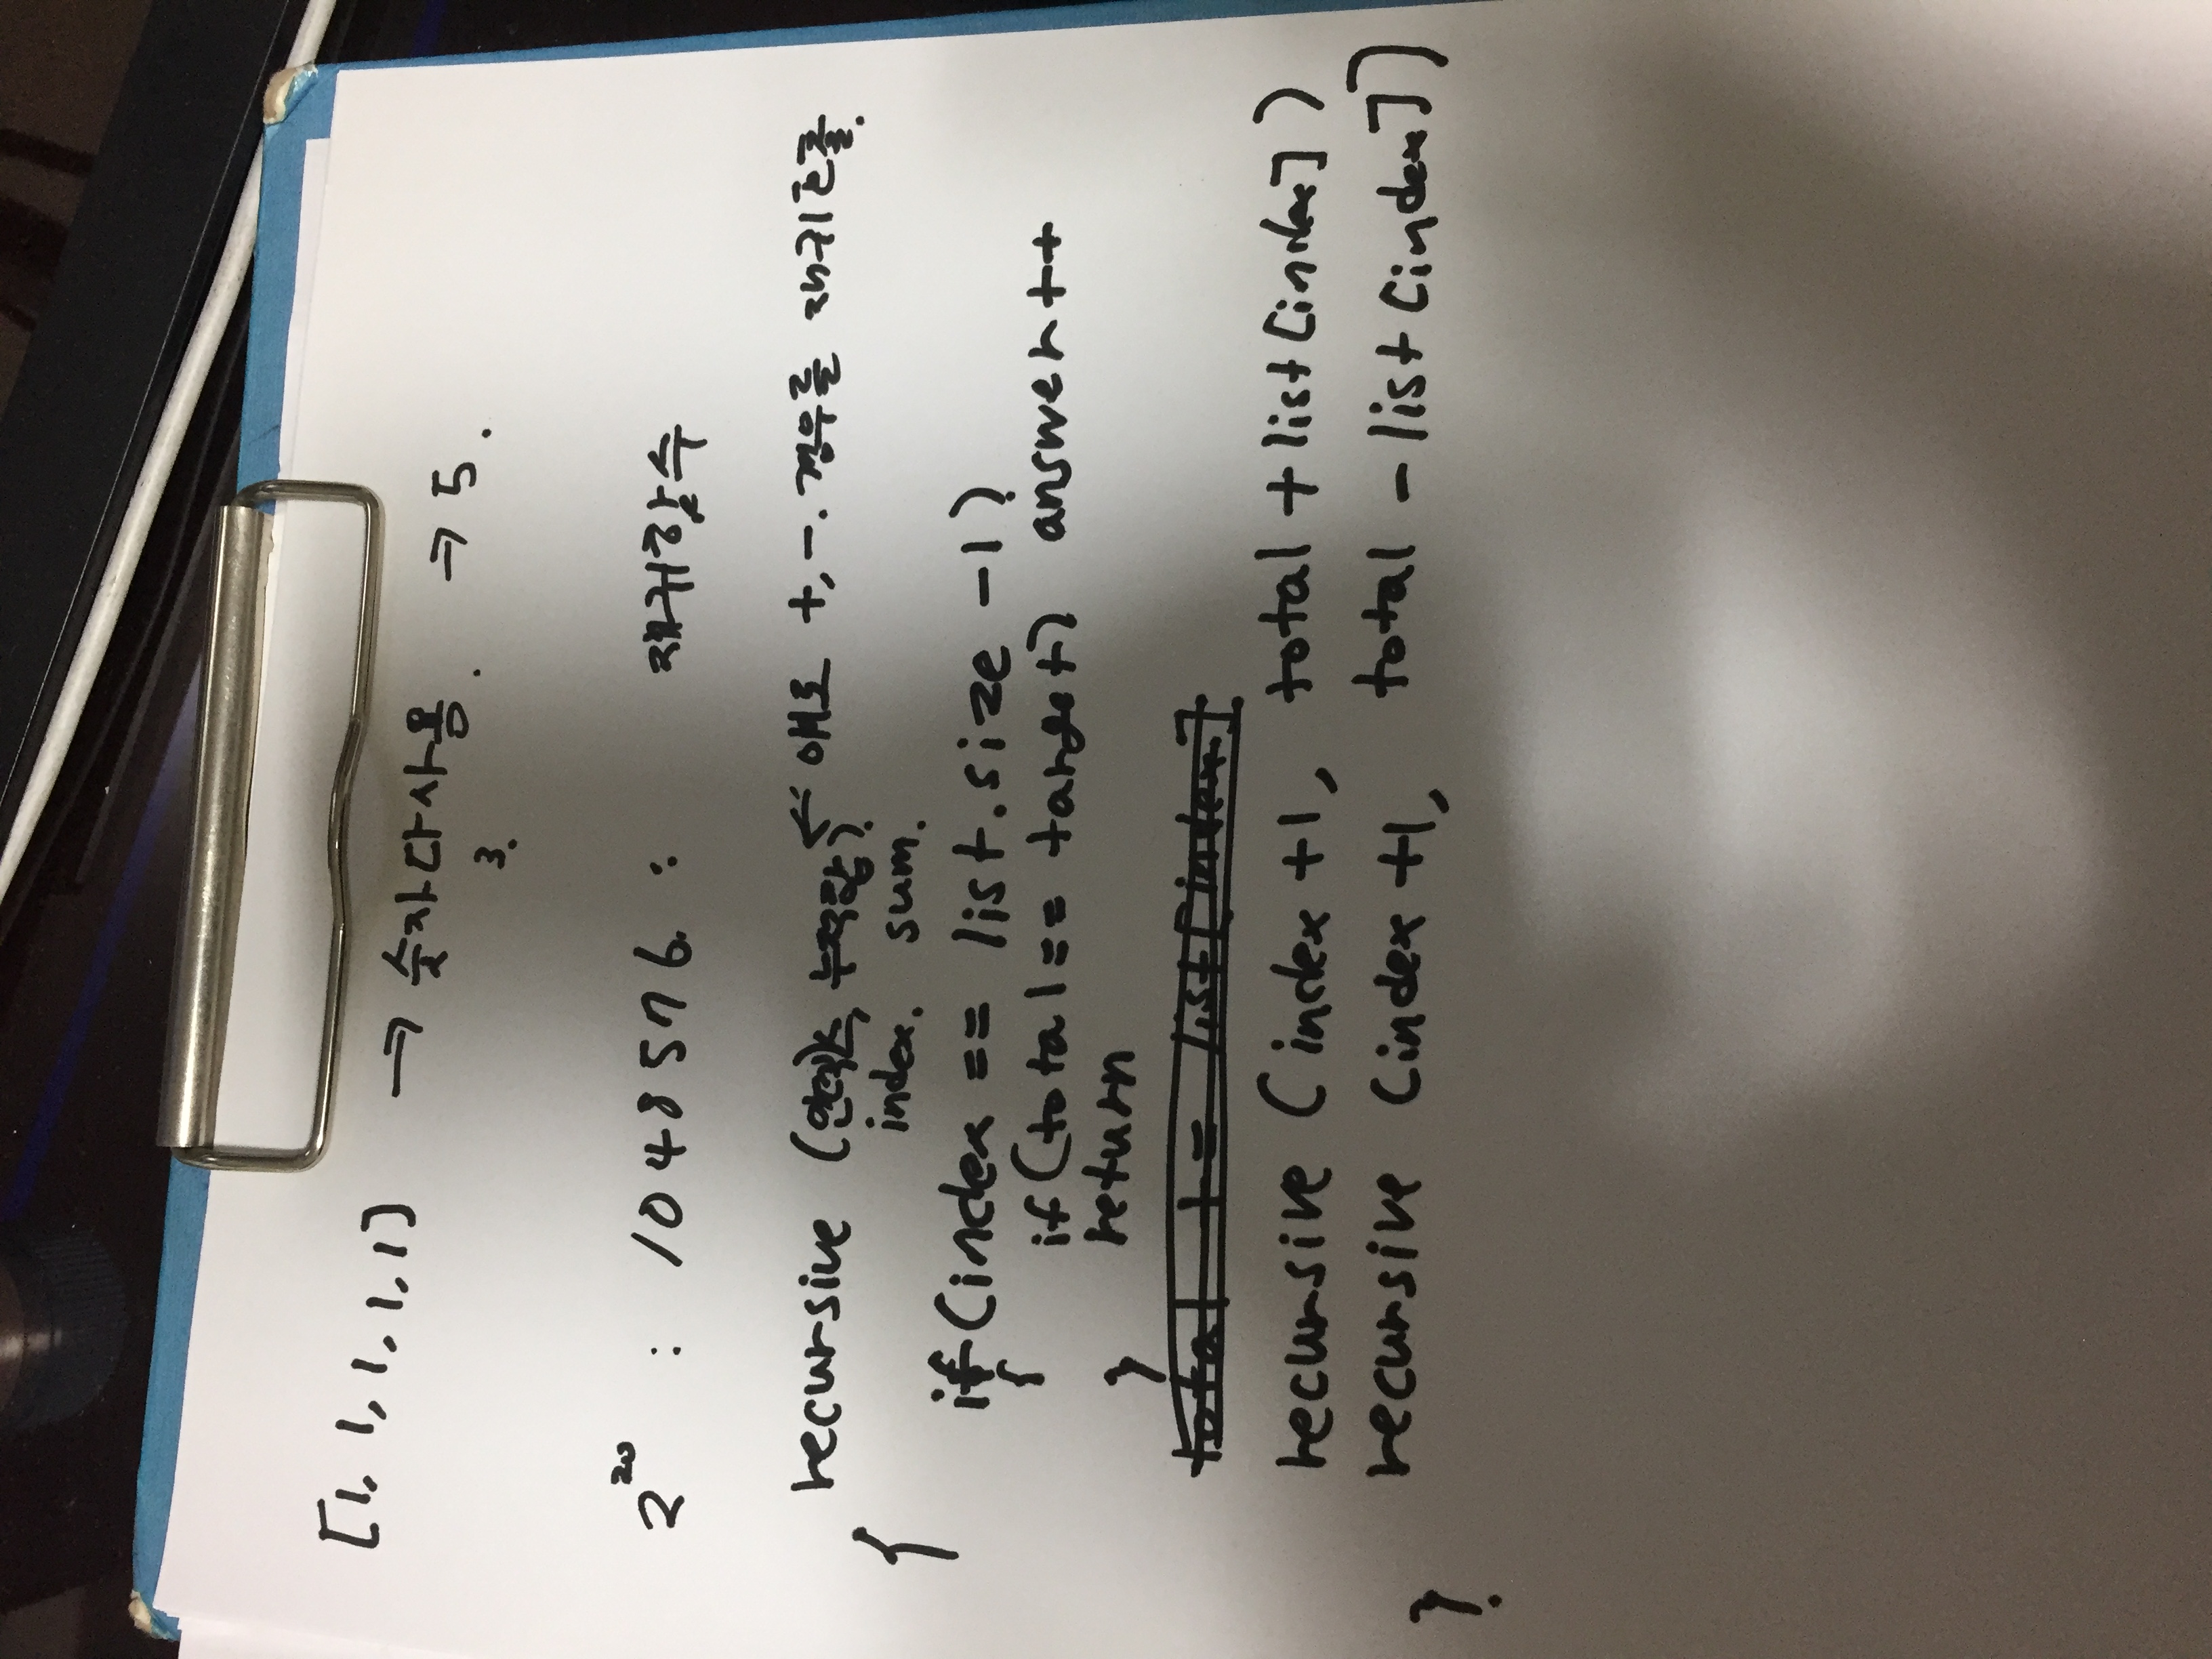 [1, 1, 1, 1, 1] → 숫자다사용. → 5.
3.
2^20 : 1048576. : 재귀함수
recursive (인덱스, 누적합) ← 얘로 +, -. 경우를 재귀호출.
index. sum.
{
if (index == list.size -1)
{
if (total == target) answer++
return
}
total += list[index]
recursive (index +1, total + list[index])
recursive (index +1, total - list[index])
}